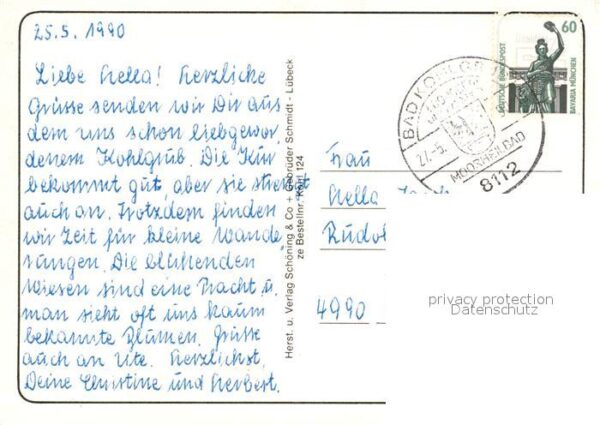 25.5.1990
Liebe Hella! Herzliche
Grüsse senden wir Dir aus
dem uns schon liebgewor,
denem Kohlgrub. Die Kur
bekommt gut, aber sie strengt
auch an. Trotzdem finden
wir Zeit für kleine Wande,
rungen. Die blühenden
Wiesen sind eine Pracht u.
man sieht oft uns kaum
bekannte Blumen. Grüsse
auch an Ute. Herzlichst,
Deine Christine und Herbert.
Herst. u. Verlag Schöning & Co + Gebrüder Schmidt - Lübeck
ze Bestellnr. Kohl 124
BAD KOHLG
27.-5.
MOORHEILBAD
8112
60
DEUTSCHE BUNDESPOST
BAVARIA MÜNCHEN
Frau
Hella
Rudol
4990
privacy protection
Datenschutz